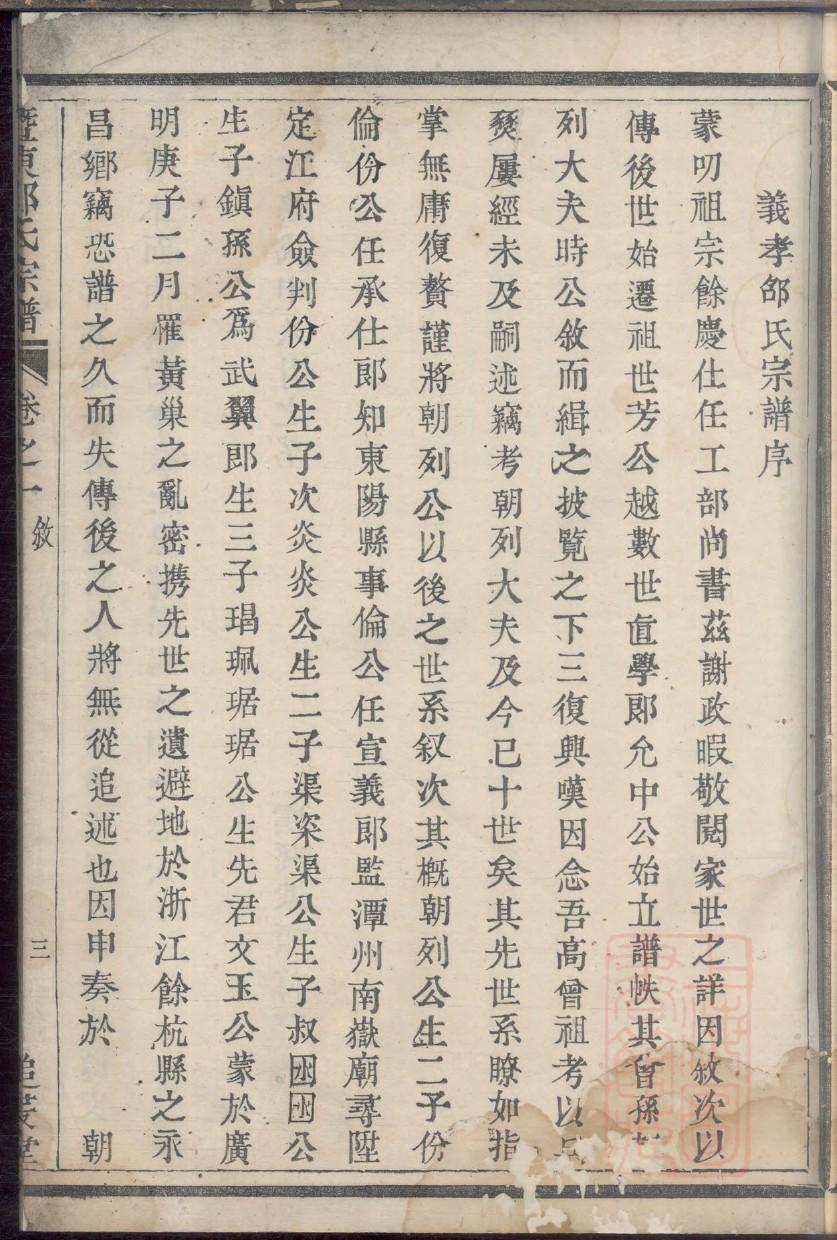 義孝郃氏宗譜序
蒙叨祖宗餘慶仕任工部尚書茲謝政暇敬閱家世之詳因敘次以
傳後世始遷祖世芳公越數世直學郎允中公始立譜帙其曾孫
列大夫時公敘而緝之披覽之下三復興嘆因念吾高曾祖考以兵
燹屢經未及嗣述竊考朝列大夫及今已十世矣其先世系瞭如指
掌無庸復贅謹將朝列公以後之世系叙次其概朝列公生二子份
倫份公任承仕郎知東陽縣事倫公任宣義郎監潭州南嶽廟尋陞
定江府僉判份公生子次炎炎公生二子渠楶渠公生子叔囦囦公
生子鎮孫公爲武翼郎生三子琩珮琚琚公生先君文玉公蒙於廣
明庚子二月罹黃巢之亂密携先世之遺避地於浙江餘杭縣之永
昌鄉竊恐譜之久而失傳後之人將無從追述也因申奏於 朝
暨東郃氏宗譜 卷之一 敘 三 追慕堂